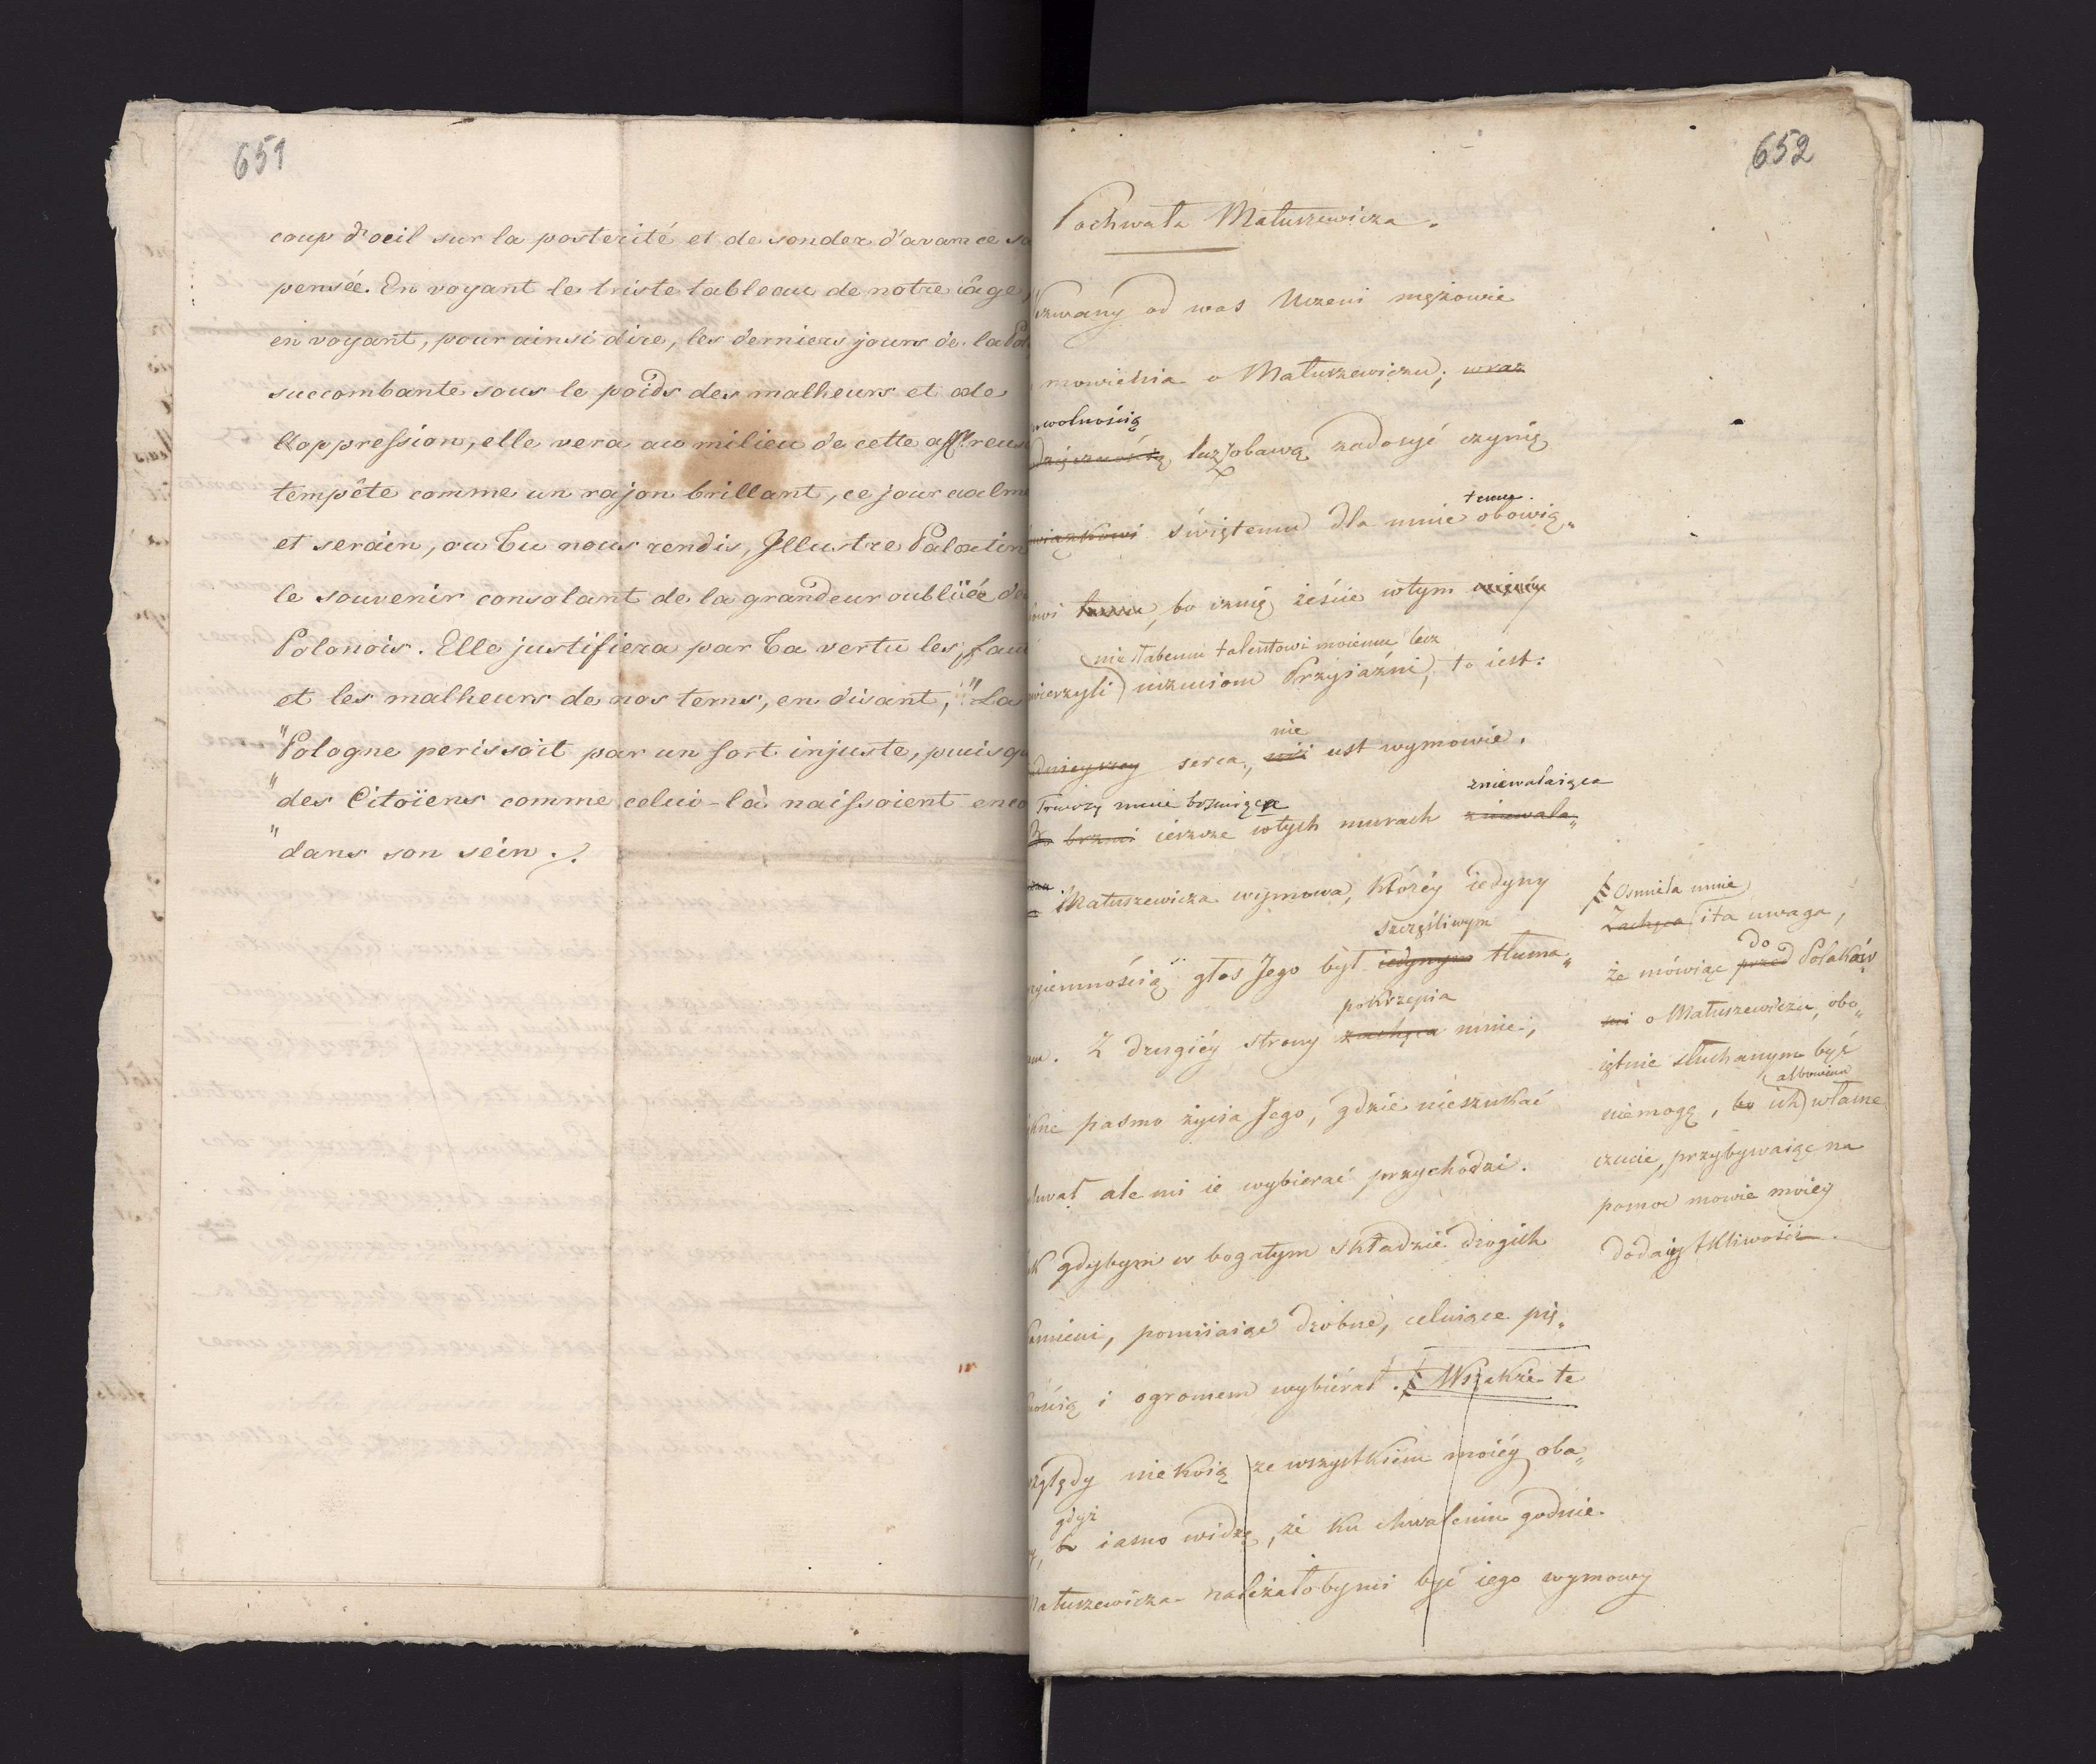 651
coup d'oeil sur la posterité et de sonder d'avance sa
pensée. En voyant le triste tableau de notre âge,
en voyant, pour ainsi dire, les derniers jours de la Pol
succombante sous le poids des malheurs et de
l'oppression, elle vera au milieu de cette affreus
tempête comme un rajon brillant, ce jour calme
et serain, ou Tu nous rendis, Illustre Palatin
le souvenir consolant de la grandeur oubliée de
Polonois. Elle justifiera par Ta vertu les fau
et les malheurs de nos tems, en disant, "La
"Pologne perissoit par un sort injuste, puisqu
"des Citoïens comme celui-là naissoient enco
"dans son séin.
652
Pochwała Matuszewicza.
zwany od was Uczeni mężowie
mowienia o Matuszewiczu; wraz
wolnością
dzięcznością łuz obawą zadosyć czynię
temu
wiązkowi świętemu dla mnie obowią„
owi temu, bo czuię żeście w tym
nie słabemu talentowi moiemu lecz
wierzyli uczuciom Przyiaźni, to iest:
nie
serca, niż ust wymowie.
Trwoży mnie brzmiąca zniewalaiąca
Bo brzmi ieszcze w tych murach zniewala„
Matuszewicza wymowa, któréy iedyny
szczęśliwym
yiemnością głos Jego był iedynym tłuma„
pokrzepia
em. Z drugiéy strony zachęca mnie,
kne pasmo życia Jego, gdzie nieszukać
hwał ale mi ie wybierać przychodzi.
ak gdybym w bogatym składzie drogich
amieni, pomiiaiąc drobne, celuiące pię„
nością i ogromem wybierał. Wszakże te
względy niekoią ze wszystkiém moiéy oba„
gdyż
y, bo iasno widzę, że ku chwaleniu godnie
Matuszewicza należałoby mi być iego wymowy
Osmiela mnie
Zachęca i ta uwaga,
do
że mówiąc przed Polaków
mi o Matuszewiczu, obo„
iętnie słuchanym być
albowiem
niemogę, bo ich własne
czucie, przybywaiąc na
pomoc mowie moiéy
doda iéy tkliwości.